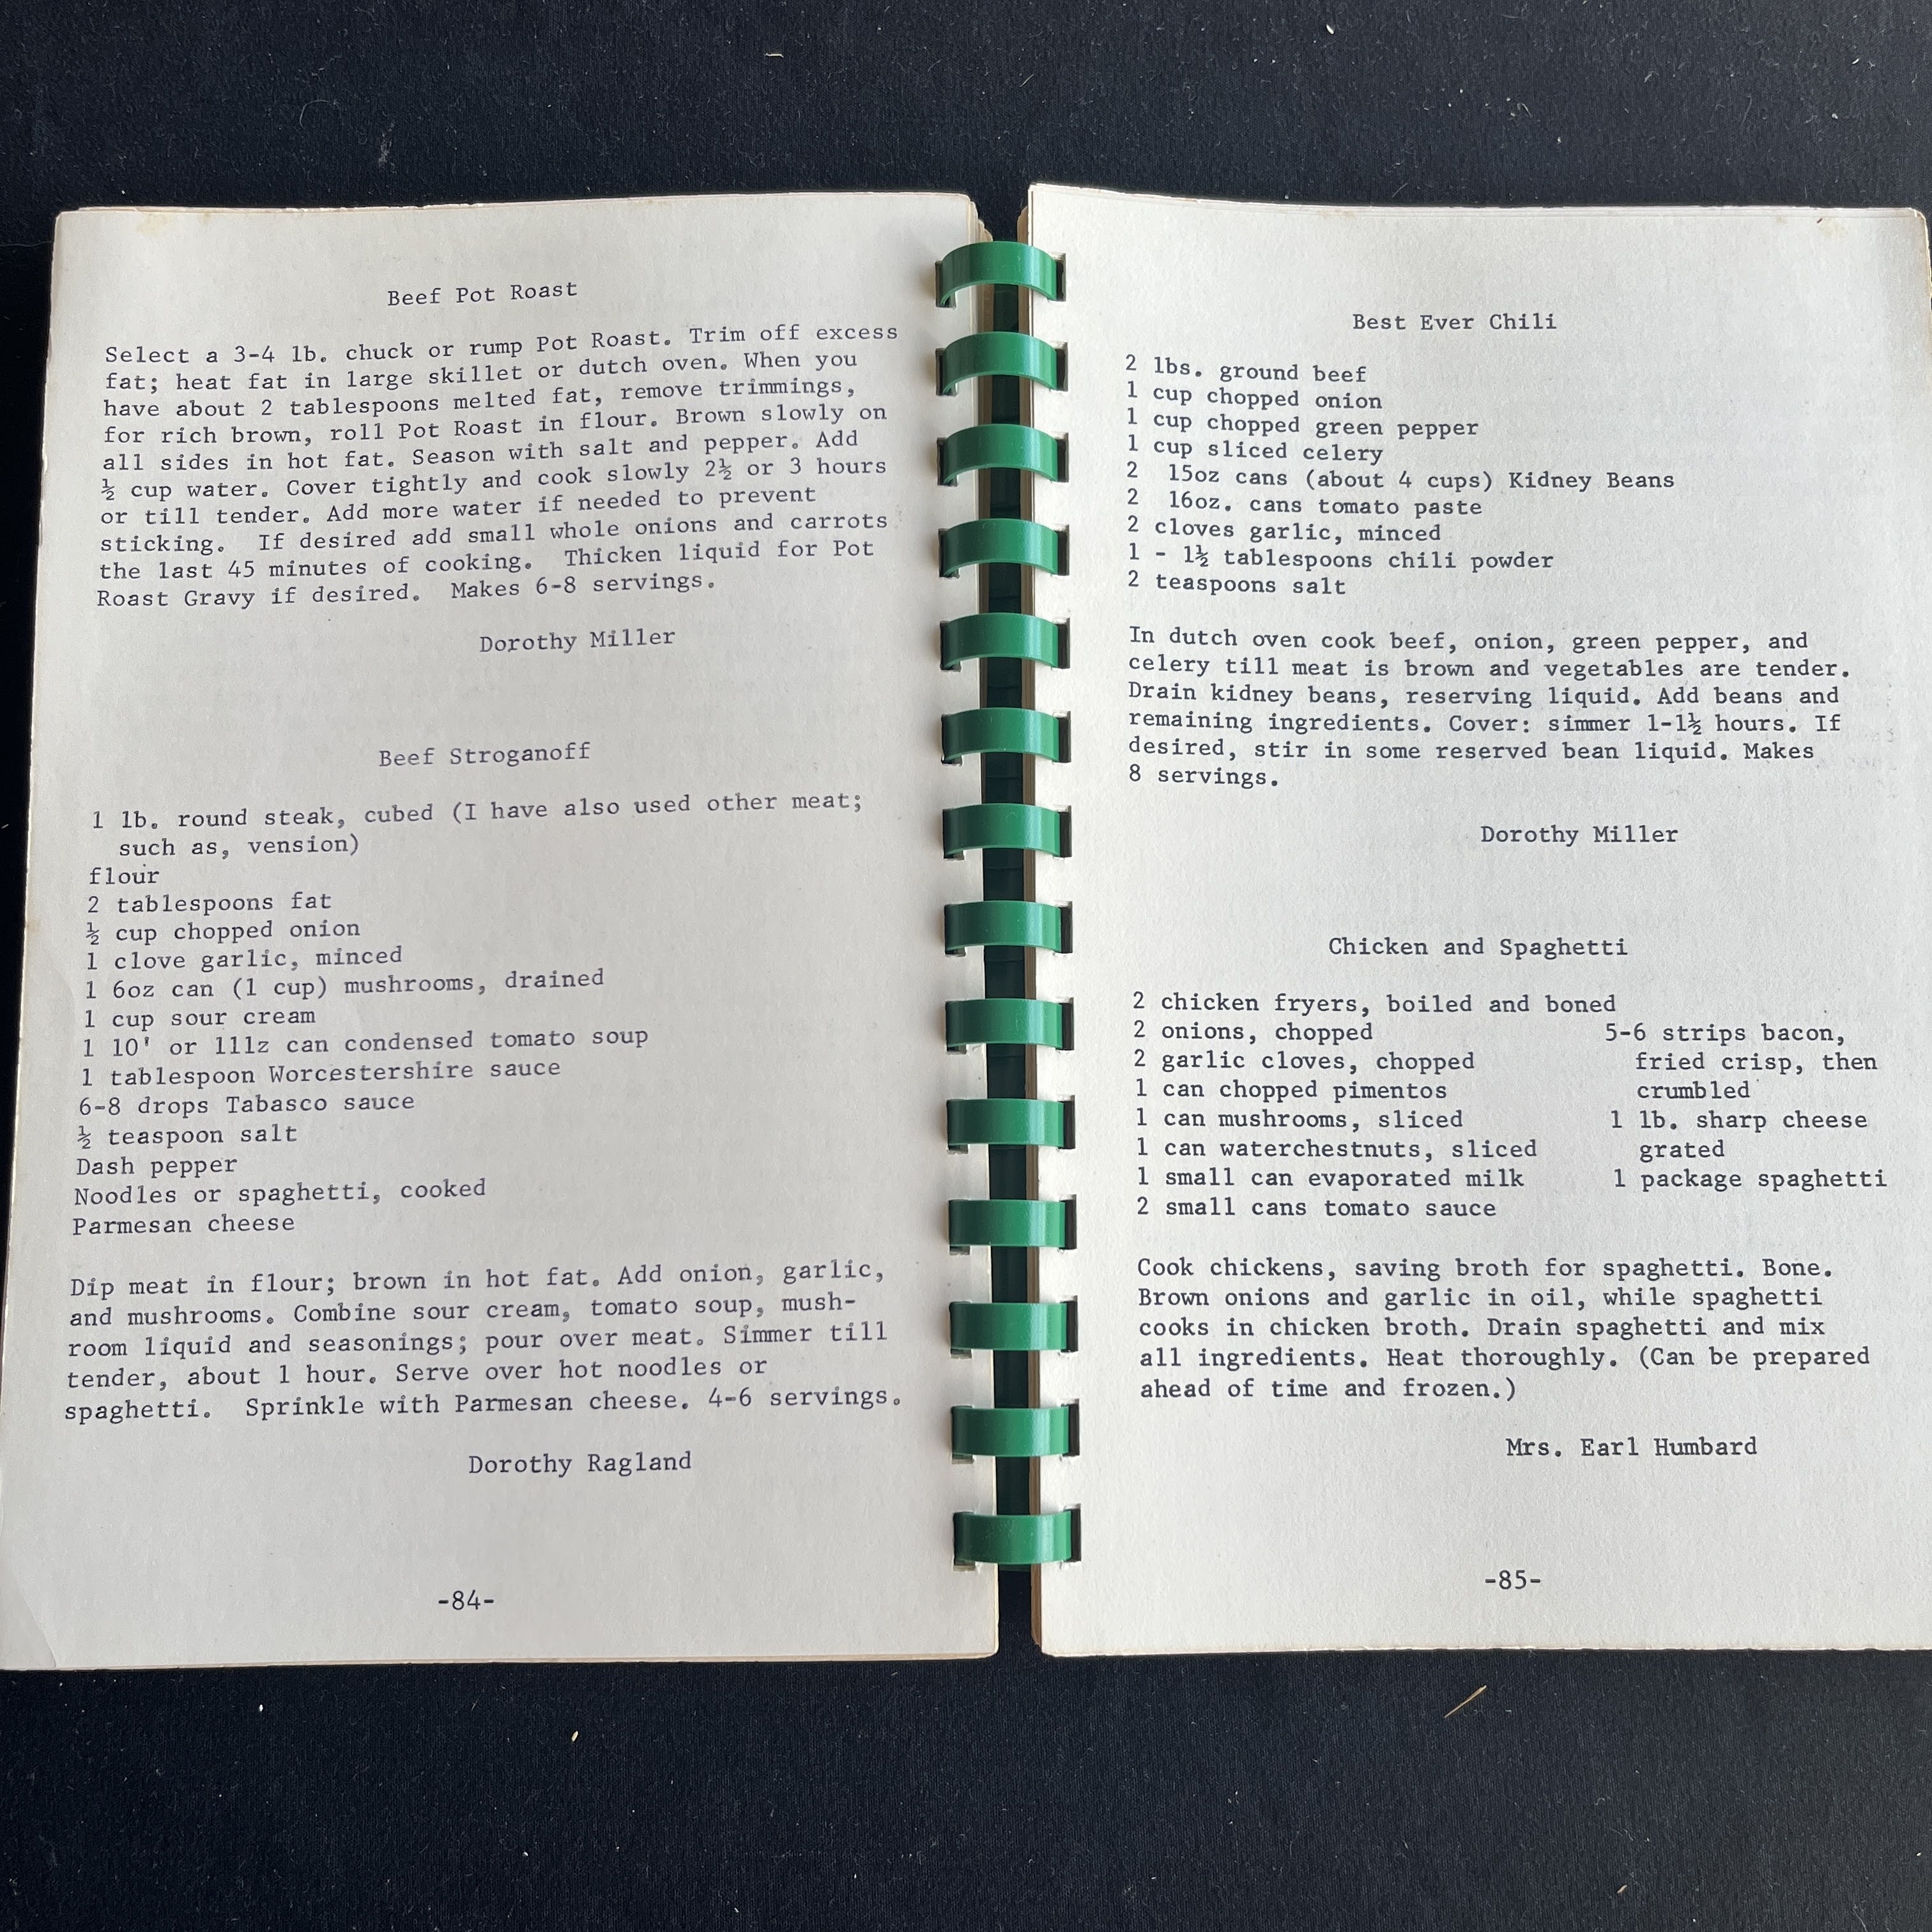 Beef Pot Roast
Select a 3-4 lb. chuck or rump Pot Roast. Trim off excess
fat; heat fat in large skillet or dutch oven. When you
have about 2 tablespoons melted fat, remove trimmings,
for rich brown, roll Pot Roast in flour. Brown slowly on
all sides in hot fat. Season with salt and pepper. Add
½ cup water. Cover tightly and cook slowly 2½ or 3 hours
or till tender. Add more water if needed to prevent
sticking. If desired add small whole onions and carrots
the last 45 minutes of cooking. Thicken liquid for Pot
Roast Gravy if desired. Makes 6-8 servings.
Dorothy Miller
Beef Stroganoff
1 lb. round steak, cubed (I have also used other meat;
such as, vension)
flour
2 tablespoons fat
½ cup chopped onion
1 clove garlic, minced
1 6oz can (1 cup) mushrooms, drained
1 cup sour cream
1 10' or 111z can condensed tomato soup
1 tablespoon Worcestershire sauce
6-8 drops Tabasco sauce
½ teaspoon salt
Dash pepper
Noodles or spaghetti, cooked
Parmesan cheese
Dip meat in flour; brown in hot fat. Add onion, garlic,
and mushrooms. Combine sour cream, tomato soup, mush-
room liquid and seasonings; pour over meat. Simmer till
tender, about 1 hour. Serve over hot noodles or
spaghetti. Sprinkle with Parmesan cheese. 4-6 servings.
Dorothy Ragland
-84-
Best Ever Chili
2 lbs. ground beef
1 cup chopped onion
1 cup chopped green pepper
1 cup sliced celery
2 15oz cans (about 4 cups) Kidney Beans
2 16oz. cans tomato paste
2 cloves garlic, minced
1 - 1½ tablespoons chili powder
2 teaspoons salt
In dutch oven cook beef, onion, green pepper, and
celery till meat is brown and vegetables are tender.
Drain kidney beans, reserving liquid. Add beans and
remaining ingredients. Cover: simmer 1-1½ hours. If
desired, stir in some reserved bean liquid. Makes
8 servings.
Dorothy Miller
Chicken and Spaghetti
2 chicken fryers, boiled and boned
2 onions, chopped
2 garlic cloves, chopped
1 can chopped pimentos
1 can mushrooms, sliced
1 can waterchestnuts, sliced
1 small can evaporated milk
2 small cans tomato sauce
5-6 strips bacon,
fried crisp, then
crumbled
1 lb. sharp cheese
grated
1 package spaghetti
Cook chickens, saving broth for spaghetti. Bone.
Brown onions and garlic in oil, while spaghetti
cooks in chicken broth. Drain spaghetti and mix
all ingredients. Heat thoroughly. (Can be prepared
ahead of time and frozen.)
Mrs. Earl Humbard
-85-